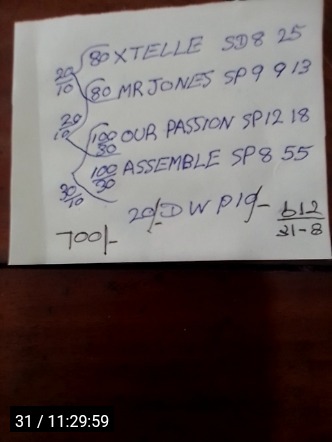 80 XTELLE SD8 25
20/10
80 MR JONES SP9 9 13
20/10
100/80 OUR PASSION SP12 18
100/30 ASSEMBLE SP8 55
30/10
20/- D W P 10/-
700/-
612
31-8
31 / 11:29:59